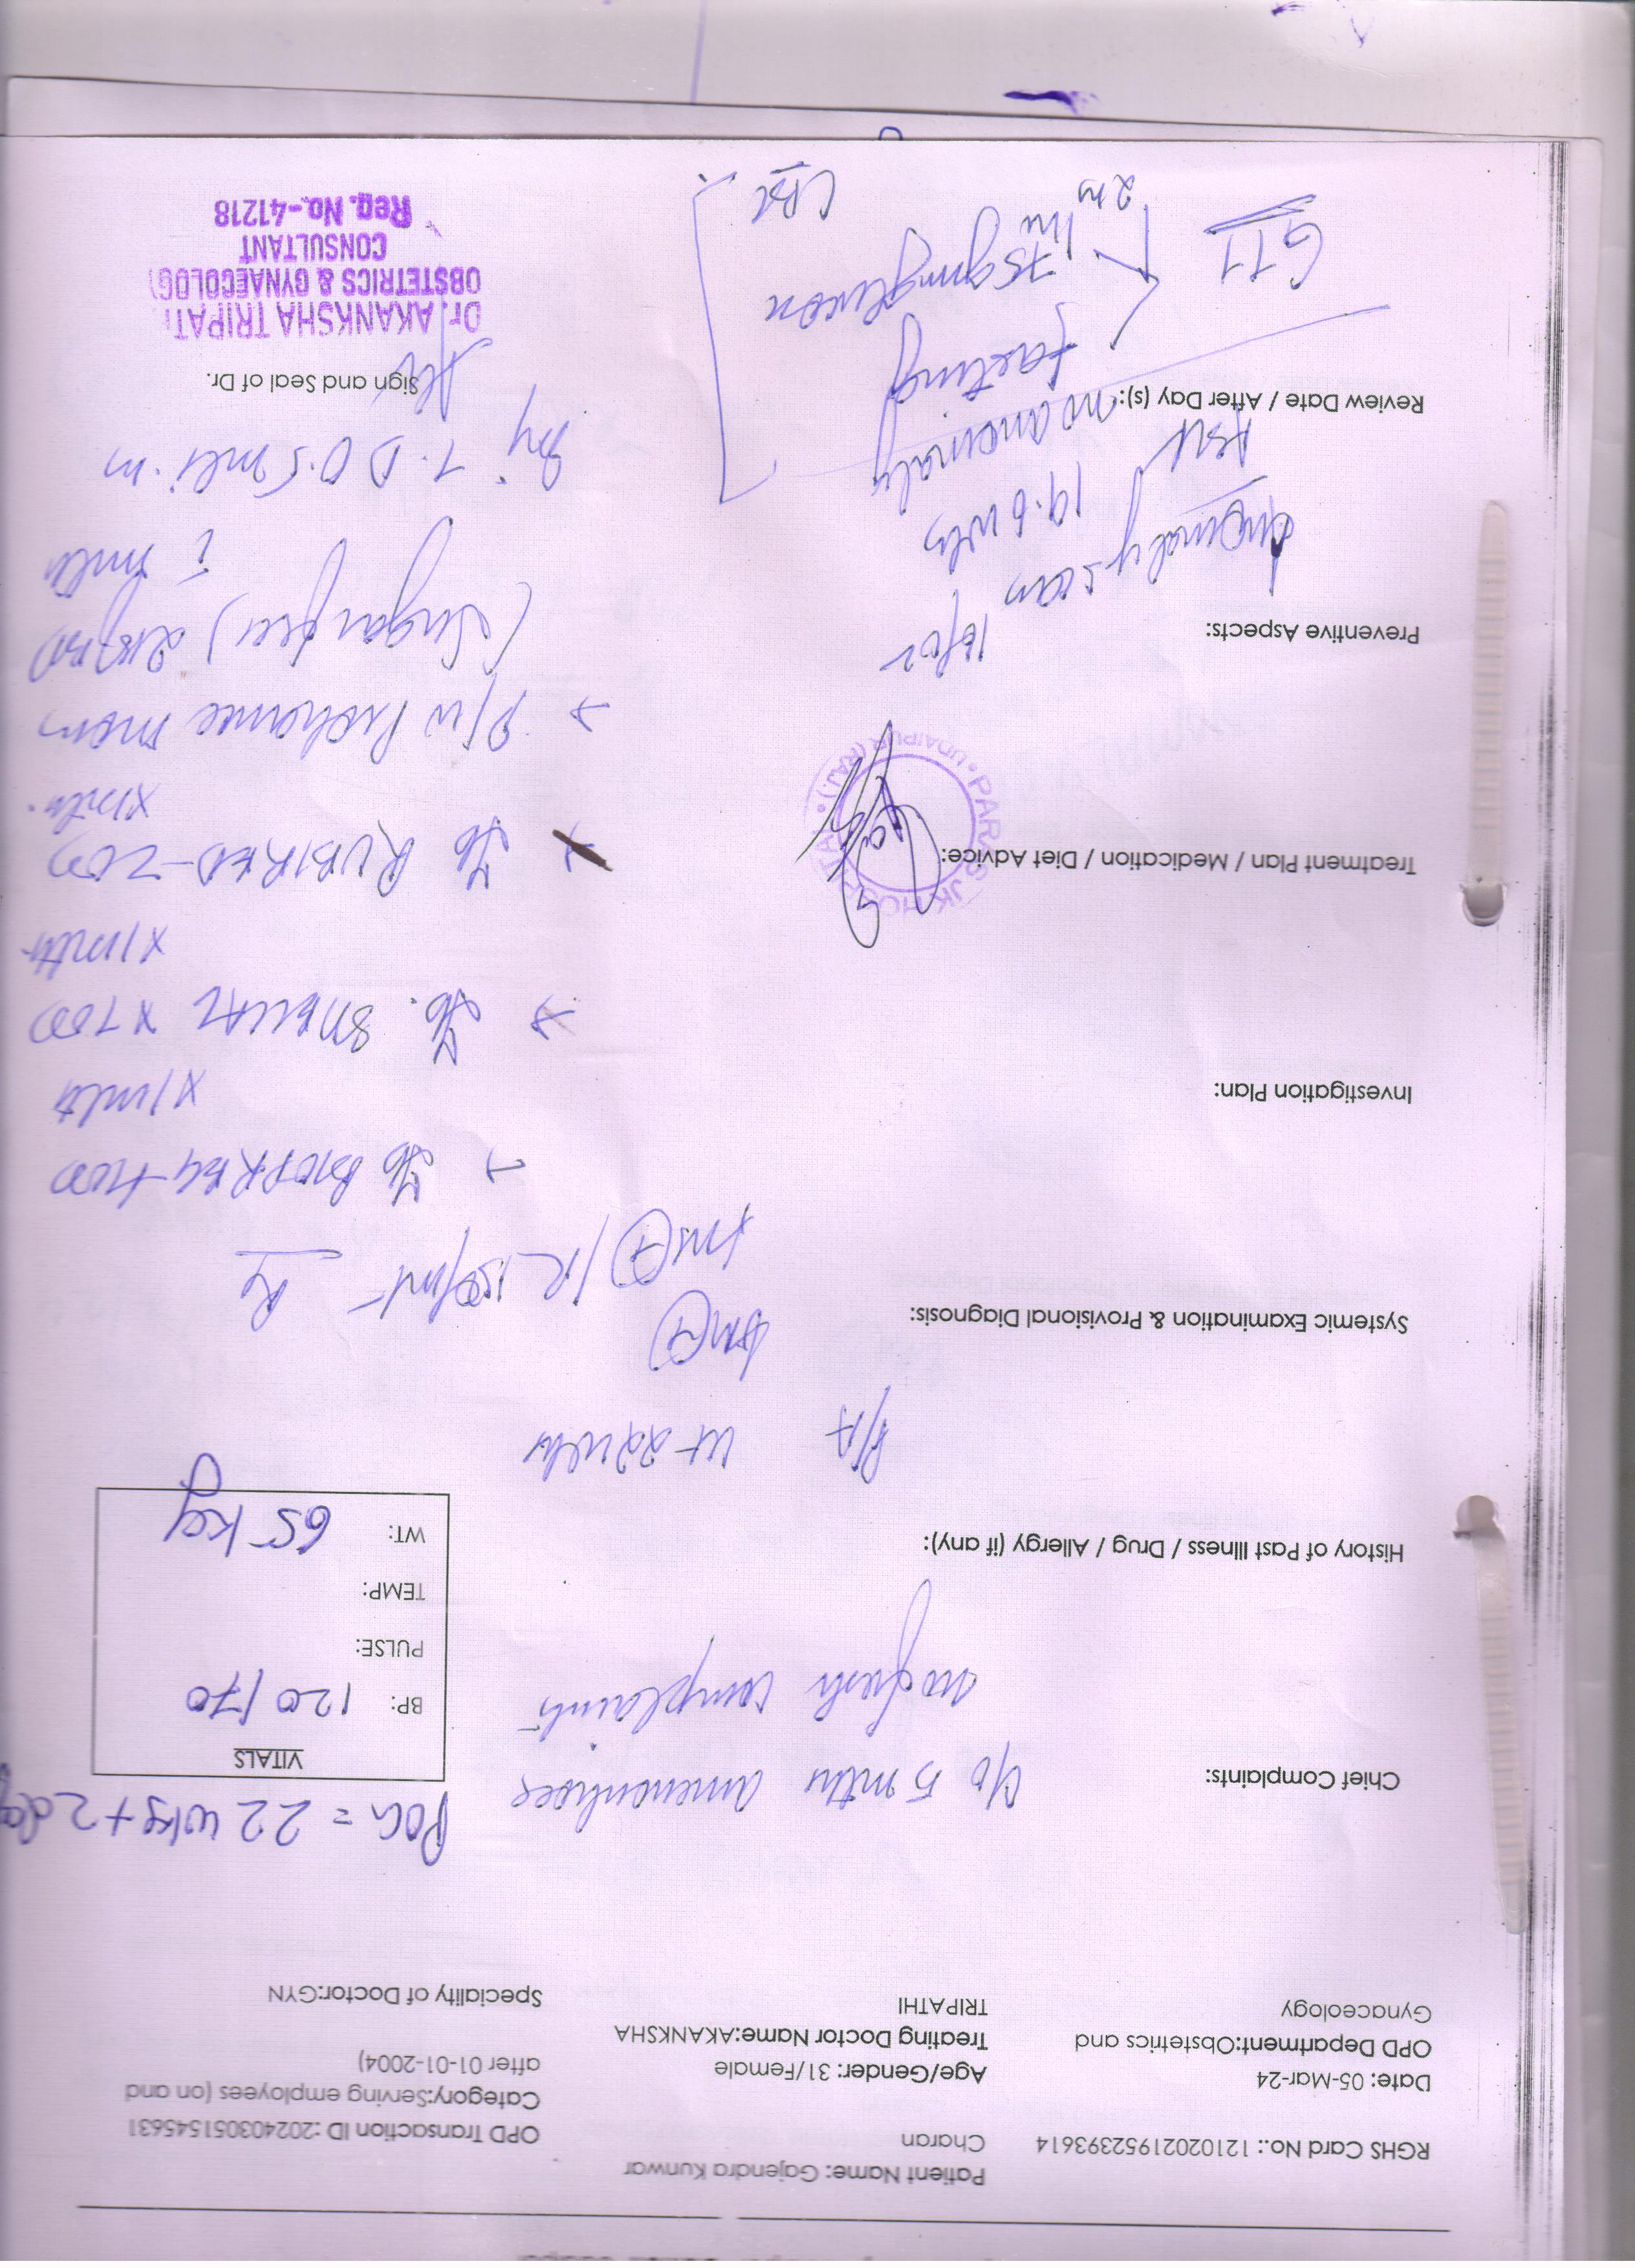 RGHS Card No.: 12102021952393614
Patient Name: Gajendra Kunwar Charan
OPD Transaction ID :202403051545631
Date: 05-Mar-24
Age/Gender: 31/Female
Category:Serving employees (on and after 01-01-2004)
OPD Department:Obstetrics and Gynaceology
Treating Doctor Name:AKANKSHA TRIPATHI
Speciality of Doctor:GYN
POG = 22 wks+2 day
Chief Complaints:
c/o 5 mths amenorrhoea
no fresh complaints
VITALS
BP: 120/70
PULSE:
TEMP:
WT: 65 kg
History of Past Illness / Drug / Allergy (if any):
P/A ut 22 wks
Systemic Examination & Provisional Diagnosis:
Rx
Investigation Plan:
x 1 mth
x 1 mth
Treatment Plan / Medication / Diet Advice:
PARAS JK HOSPITAL • UDAIPUR (RAJ.) •
x 1 mth
(Sugar free)
c milk
Preventive Aspects:
Anomaly scan
19.6 wks
no anomaly
Inj T.D 0.5 ml i.m
Review Date / After Day (s):
Sign and Seal of Dr.
GTT
fasting
75 gm glucose
1 hr
2 hr
CBC
Dr. AKANKSHA TRIPAT
OBSTETRICS & GYNAECOLOG
CONSULTANT
Reg. No.-41218